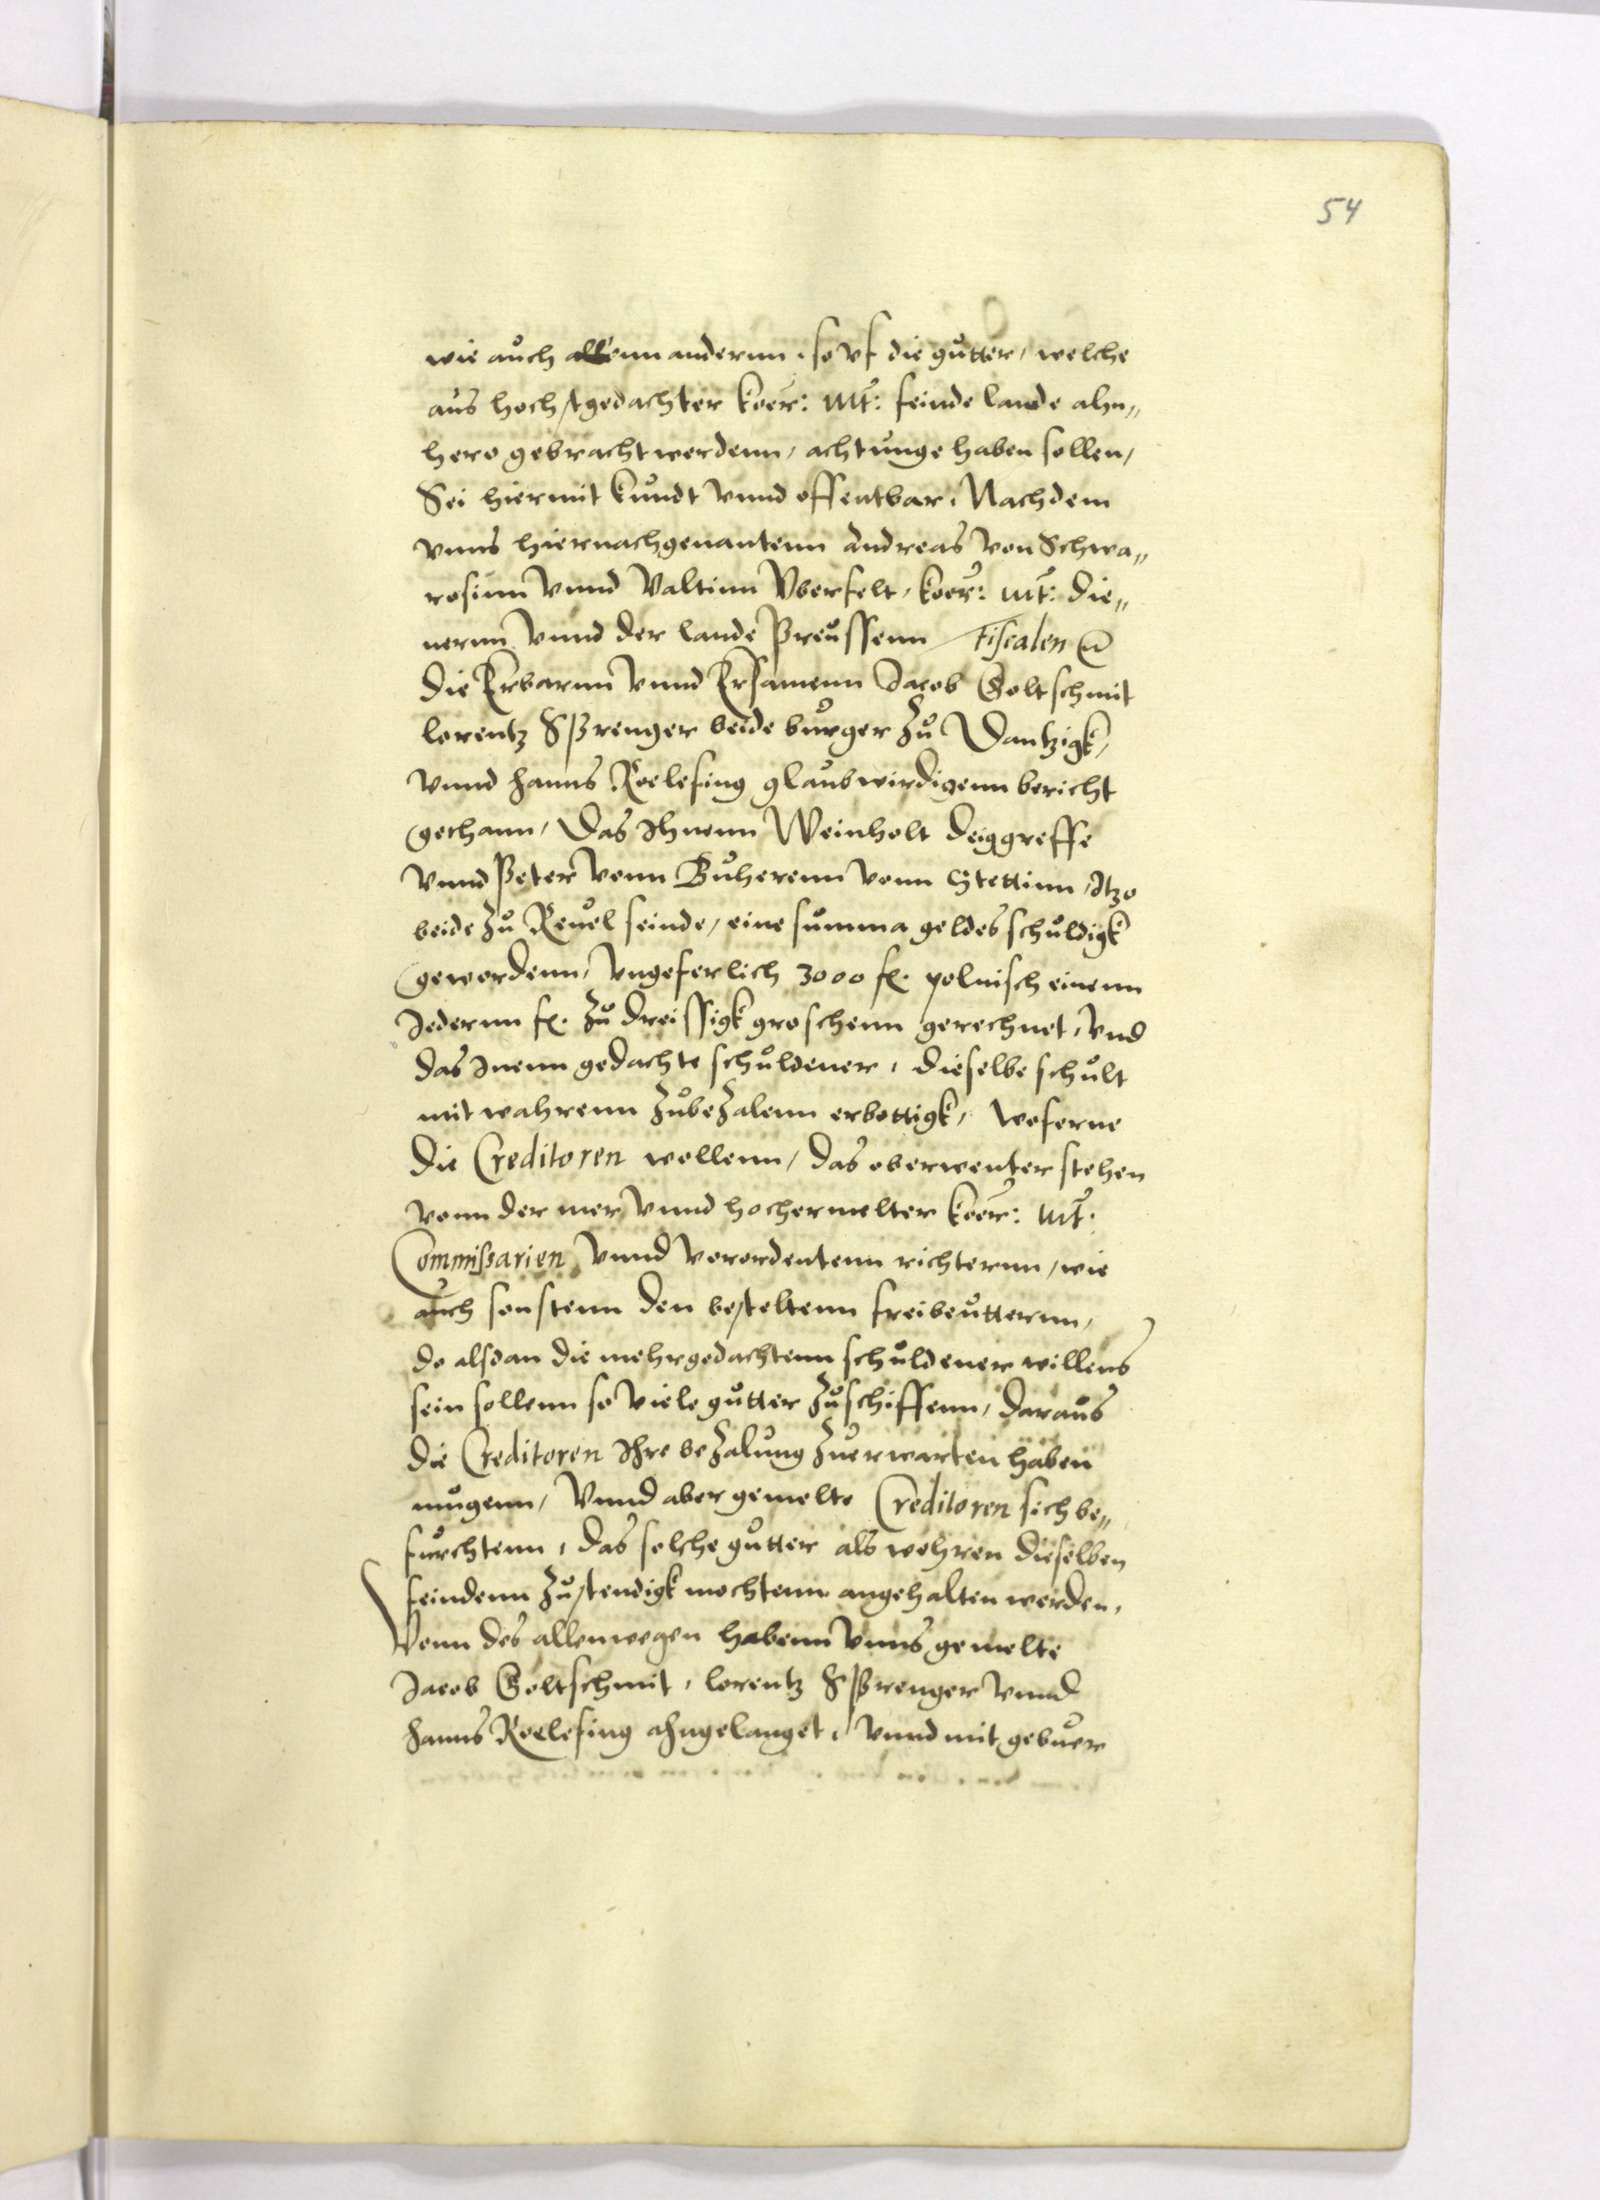 54
wie auch allenn anderenn, so vf die gutter, welche
aus hochstgedachter koer: Mt: feinde lande ahn„
hero gebracht werdenn, achtunge haben sollen,
Sei hiermit kundt vnnd offentbar, Nachdem
vnns hiernachgenantenn Andreas von Schwa„
rosinn vnnd Valtinn Vberfelt, koer: Mt: die„
nernn vnnd der lande Preussenn Fiscalen
die Erbarnn vnnd Ersamenn Jacob Goltschmit
lorentz Sprenger beide burger zu Dantzigk,
vnnd hanns Roelefing glaubwirdigenn bericht
gethann, das Ihnenn Weinholt deiggreffe
vnnd Peter vonn Buherenn vonn Stettinn, Itzo
beide zu Reuel seinde, eine summa geldes schuldigk
gewordenn, vngeferlich 3000 fl. polnisch einenn
Jedernn fl. zu dreissigk groschenn gerechnet, vnd
das Inenn gedachte schuldener, dieselbe schult
mit wahrenn zubezalenn erbottigk, woferne
die Creditoren wollenn, das eberwenter stehen
vonn der mer vnnd hochermelter koer: Mt:
Commissarien vnnd verordentenn richternn, wie
auch sonstenn den besteltenn freibeutternn,
do alsdan die mehrgedachtenn schuldener willens
sein sollenn so viele gutter zuschiffenn, daraus
die Creditoren Ihre bezalung zuerwarten haben
mugenn, Vnnd aber gemelte Creditoren sich be„
furchtenn, das solche gutter als wehren dieselben
feindenn zustendigk mochtenn angehalten werden,
Vonn des allenwegen habenn vnns gemelte
Jacob Goltschmit, lorentz Sprenger vnnd
hanns Roelefing ahngelanget, vnnd mit gebuer